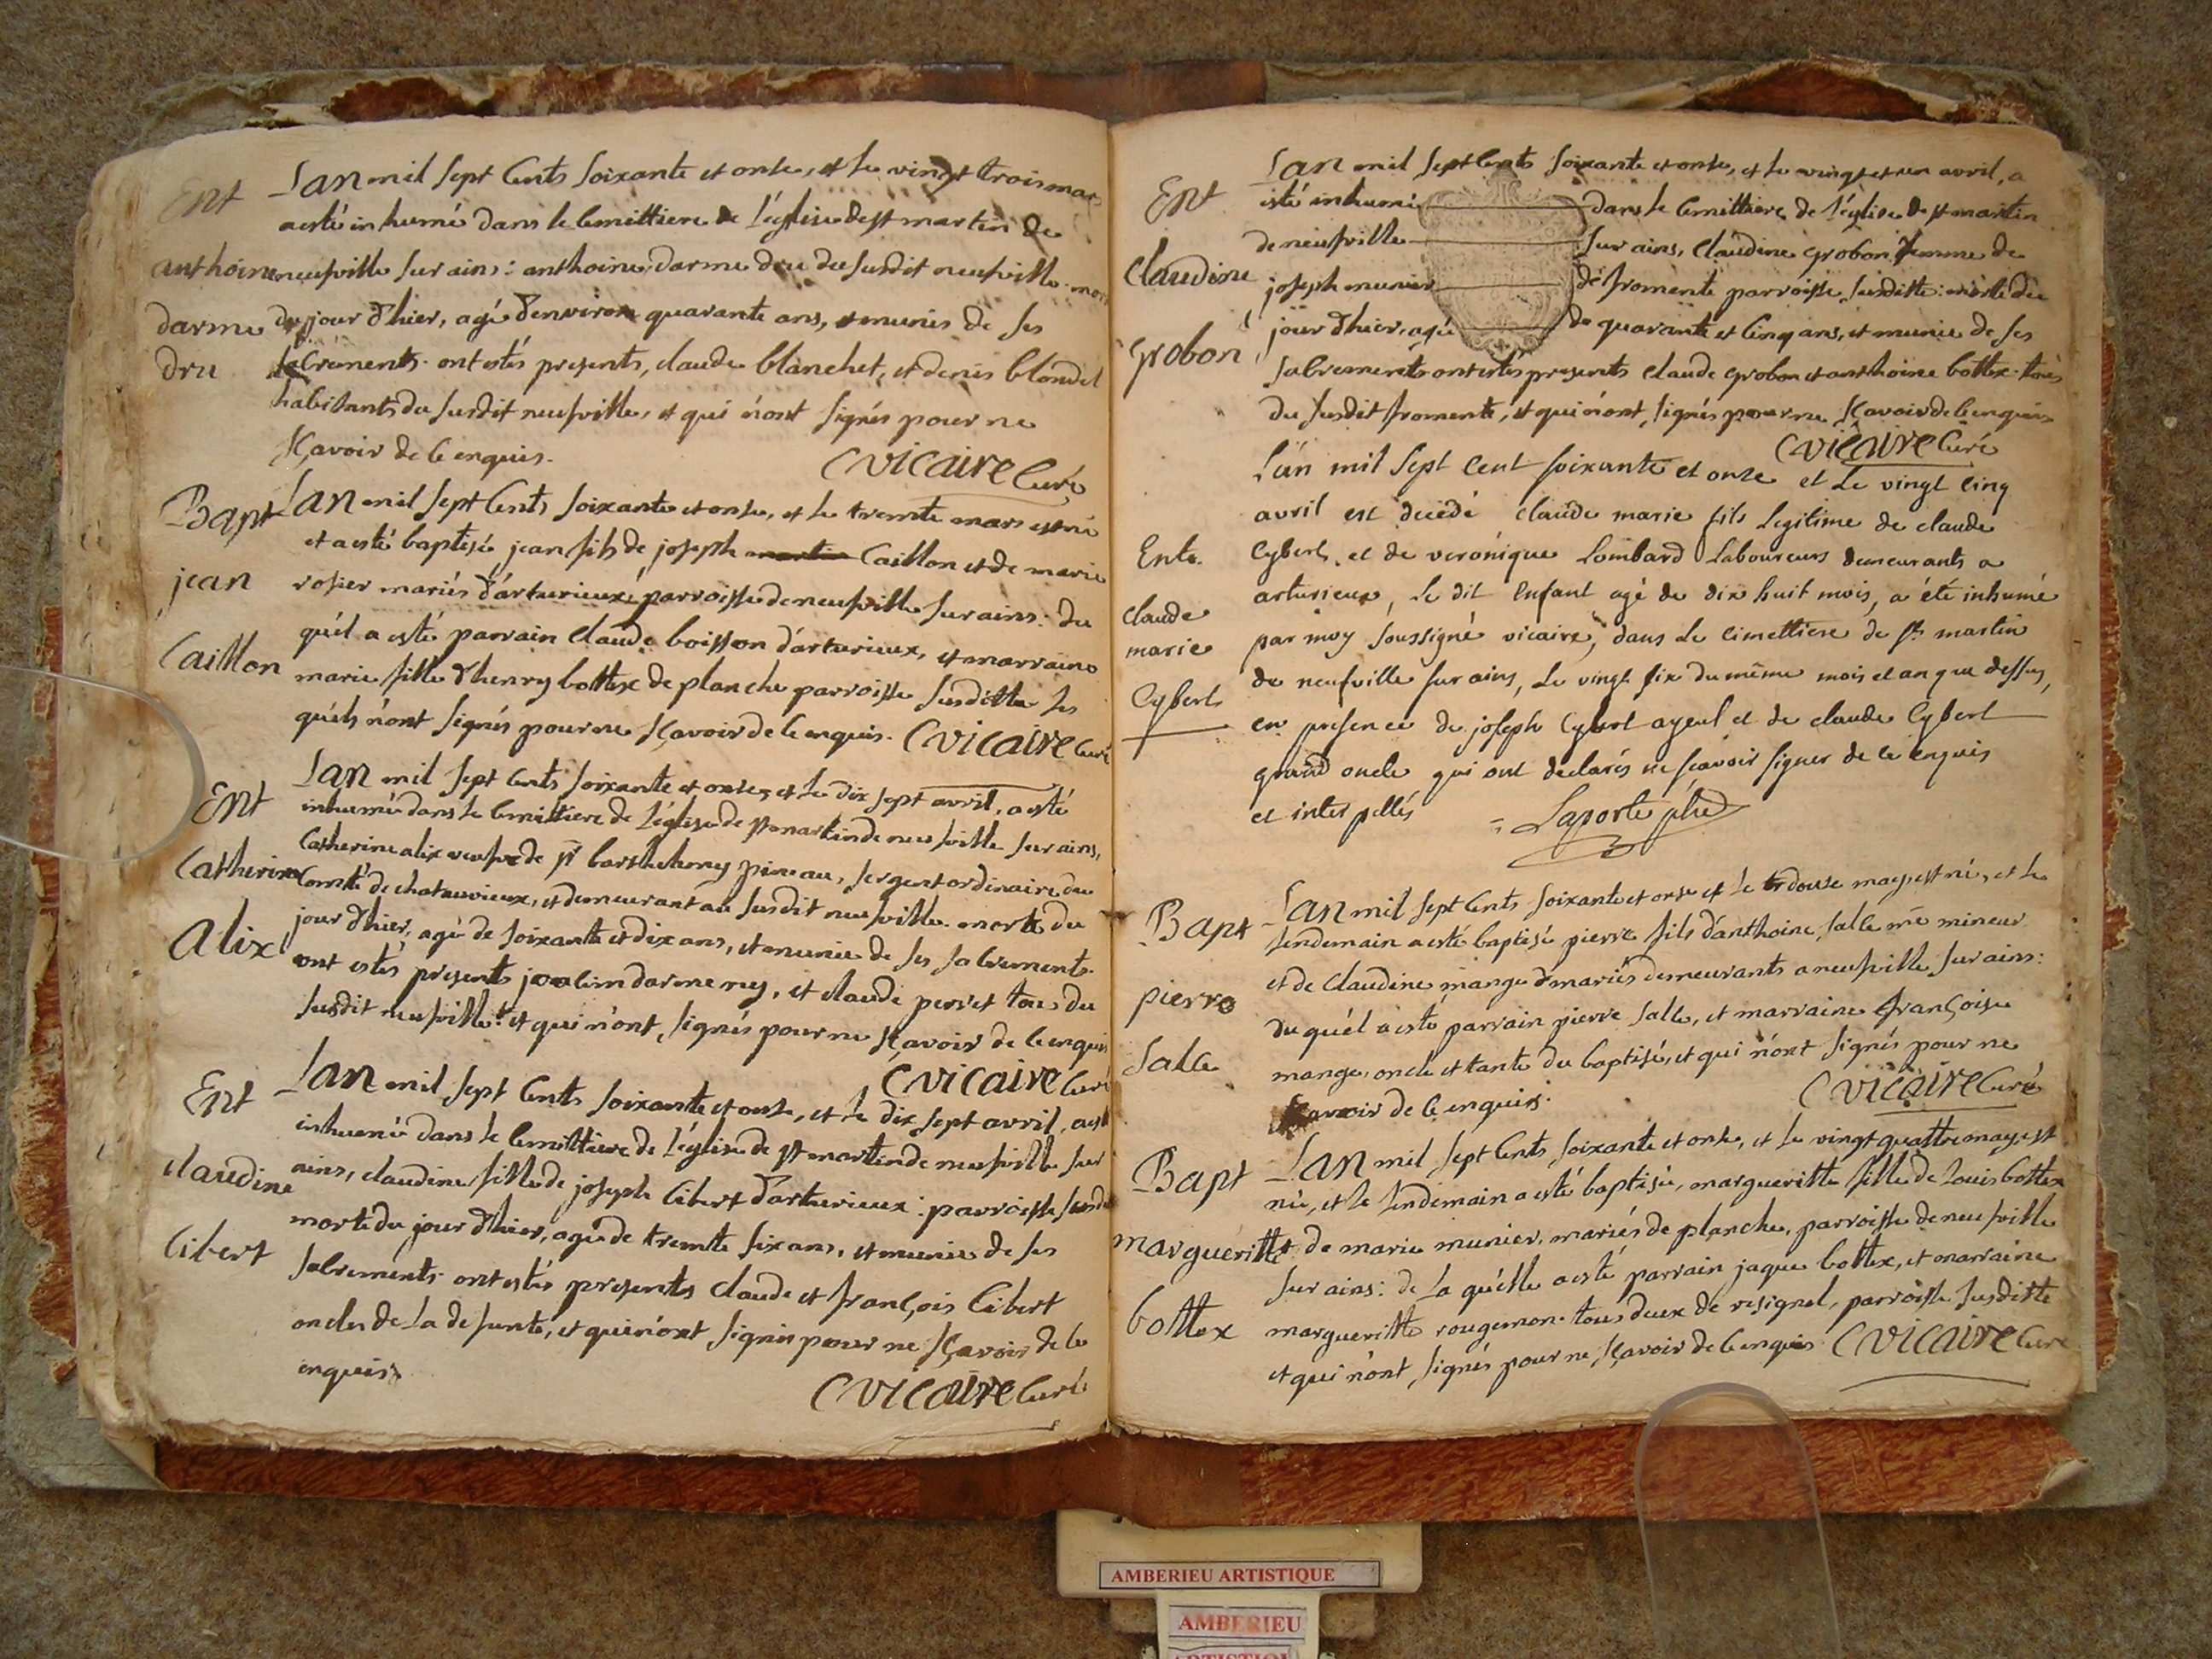 Ent
anthoine
darme
dru
Lan mil sept Cents soixante et onse, et le vingt trois mar
a esté inhumé dans le Cemittiere de l'église de st martin de
neufville sur ains: anthoine darme dru du susdit neufville. mort
du jour d'hier, agé d'environ quarante ans, et munis de ses
sacrements. ont estés presents, claude blanchet, et denis blondel
habitants du susdit neufville, et qui n'ont signés pour ne
sçavoir de ce enquis.
Cvicaire Curé
Bapt
jean
Caillon
Lan mil sept Cents soixante et onse, et le trente mars est né
et a esté baptisé, jean fils de joseph Caillon et de marie
rosier mariés d'arturieux, parroisse de neufville sur ains: du
quél a esté parrain Claude boisson d'arturieux, et marraine
marie fille d'henry bottex de planche parroisse susditte les
quéls n'ont signés pour ne sçavoir de ce enquis. Cvicaire Curé
Ent
Catherine
Alix
Lan mil sept Cents soixante et onse, et le dix sept avril, a esté
inhumée dans le Cemittiere de l'église de st martin de neufville sur ains,
Catherine alix veufve de sr barthelemy pineau, sergent ordinaire du
Comté de chateauvieux, et demeurant au susdit neufville. morte du
jour d'hier, agé de soixante et dix ans, et munie de ses sacrements.
ont estés presents joacim darmeney, et claude perret tous du
susdit neufville: et qui n'ont signés pour ne sçavoir de ce enquis
Cvicaire Curé
Ent
claudine
Cibert
Lan mil sept Cents soixante et onse, et le dix sept avril, a esté
inhumé dans le Cemittiere de l'église de st martin de neufville sur
ains, claudine fille de joseph Cibert d'arturieux: parroisse susd
morte du jour d'hier, agé de trente six ans, et munie de ses
sacrements. ont estés presents Claude et françois Cibert
oncles de la defunte, et qui n'ont signés pour ne sçavoir de ce
enquis
Cvicaire Curé
Ent
Claudine
grobon
Lan mil sept Cents soixante et onse, et le vingt et un avril, a
esté inhumé dans le Cemittiere de l'église de st martin
de neufville sur ains, Claudine grobon femme de
joseph munier de fromente parroisse susditte: morte du
jour d'hier, agée de quarante et Cinq ans, et munie de ses
sacrements ont estés presents Claude grobon et anthoine bottex. tous
du susdit fromente, et qui n'ont signés pour ne sçavoir de ce enquis
Cvicaire Curé
Ente.
claude
marie
Cybert
L'an mil sept cent soixante et onze et le vingt cinq
avril est decedé claude marie fils legitime de claude
Cybert et de veronique Lombard laboureurs demeurants a
arturieux, le dit enfant agé de dix huit mois, a été inhumé
par moy soussigné vicaire, dans le cimettiere de st martin
de neufville sur ains, le vingt six du même mois et an que dessus,
en presence de joseph Cybert ayeul et de claude Cybert
grand oncle qui ont declarés ne scavoir signer de ce enquis
et interpellés
Laporte ptre
Bapt
pierre
Salle
Lan mil sept Cents soixante et onse et le douse may, est né, et le
lendemain a esté baptisé pierre fils d'anthoine salle me mineur
et de Claudine mange mariés demeurants a neufville sur ains:
du quél a esté parrain pierre salle, et marraine françoise
mange, oncle et tante du baptisé, et qui n'ont signés pour ne
sçavoir de ce enquis.
Cvicaire Curé
Bapt
margueritte
bottex
Lan mil sept Cents soixante et onse, et le vingt quattre may, est
née, et le lendemain a esté baptisée, margueritte fille de Louis bottex
et de marie munier, mariés de planche, parroisse de neufville
sur ains: de la quélle a esté parrain jaque bottex, et marraine
margueritte rougemon. tous deux de resignel, parroisse susditte
et qui n'ont signés pour ne sçavoir de ce enquis Cvicaire Curé
AMBERIEU ARTISTIQUE
AMBERIEU
ARTISTIQUE